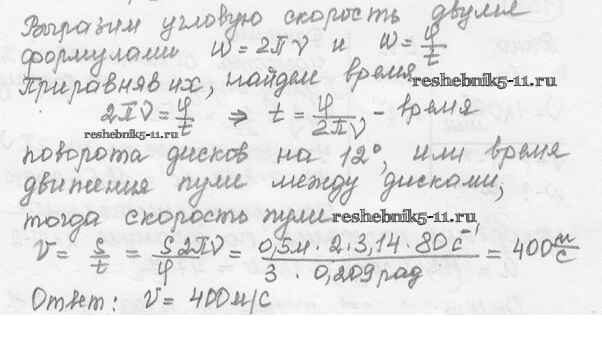 Выразим угловую скорость двумя
формулами ω = 2πν и ω = φ/t
Приравняв их, найдем время
reshebnik5-11.ru
2πν = φ/t ⇒ t = φ/2πν, - время
reshebnik5-11.ru
поворота дисков на 12°, или время
движения пули между дисками,
тогда скорость пули
reshebnik5-11.ru
V = S/t = S2πν/φ = 0,5м · 2 · 3,14 · 80 с⁻¹ / 3 · 0,209 рад = 400 м/с
Ответ: V = 400 м/с